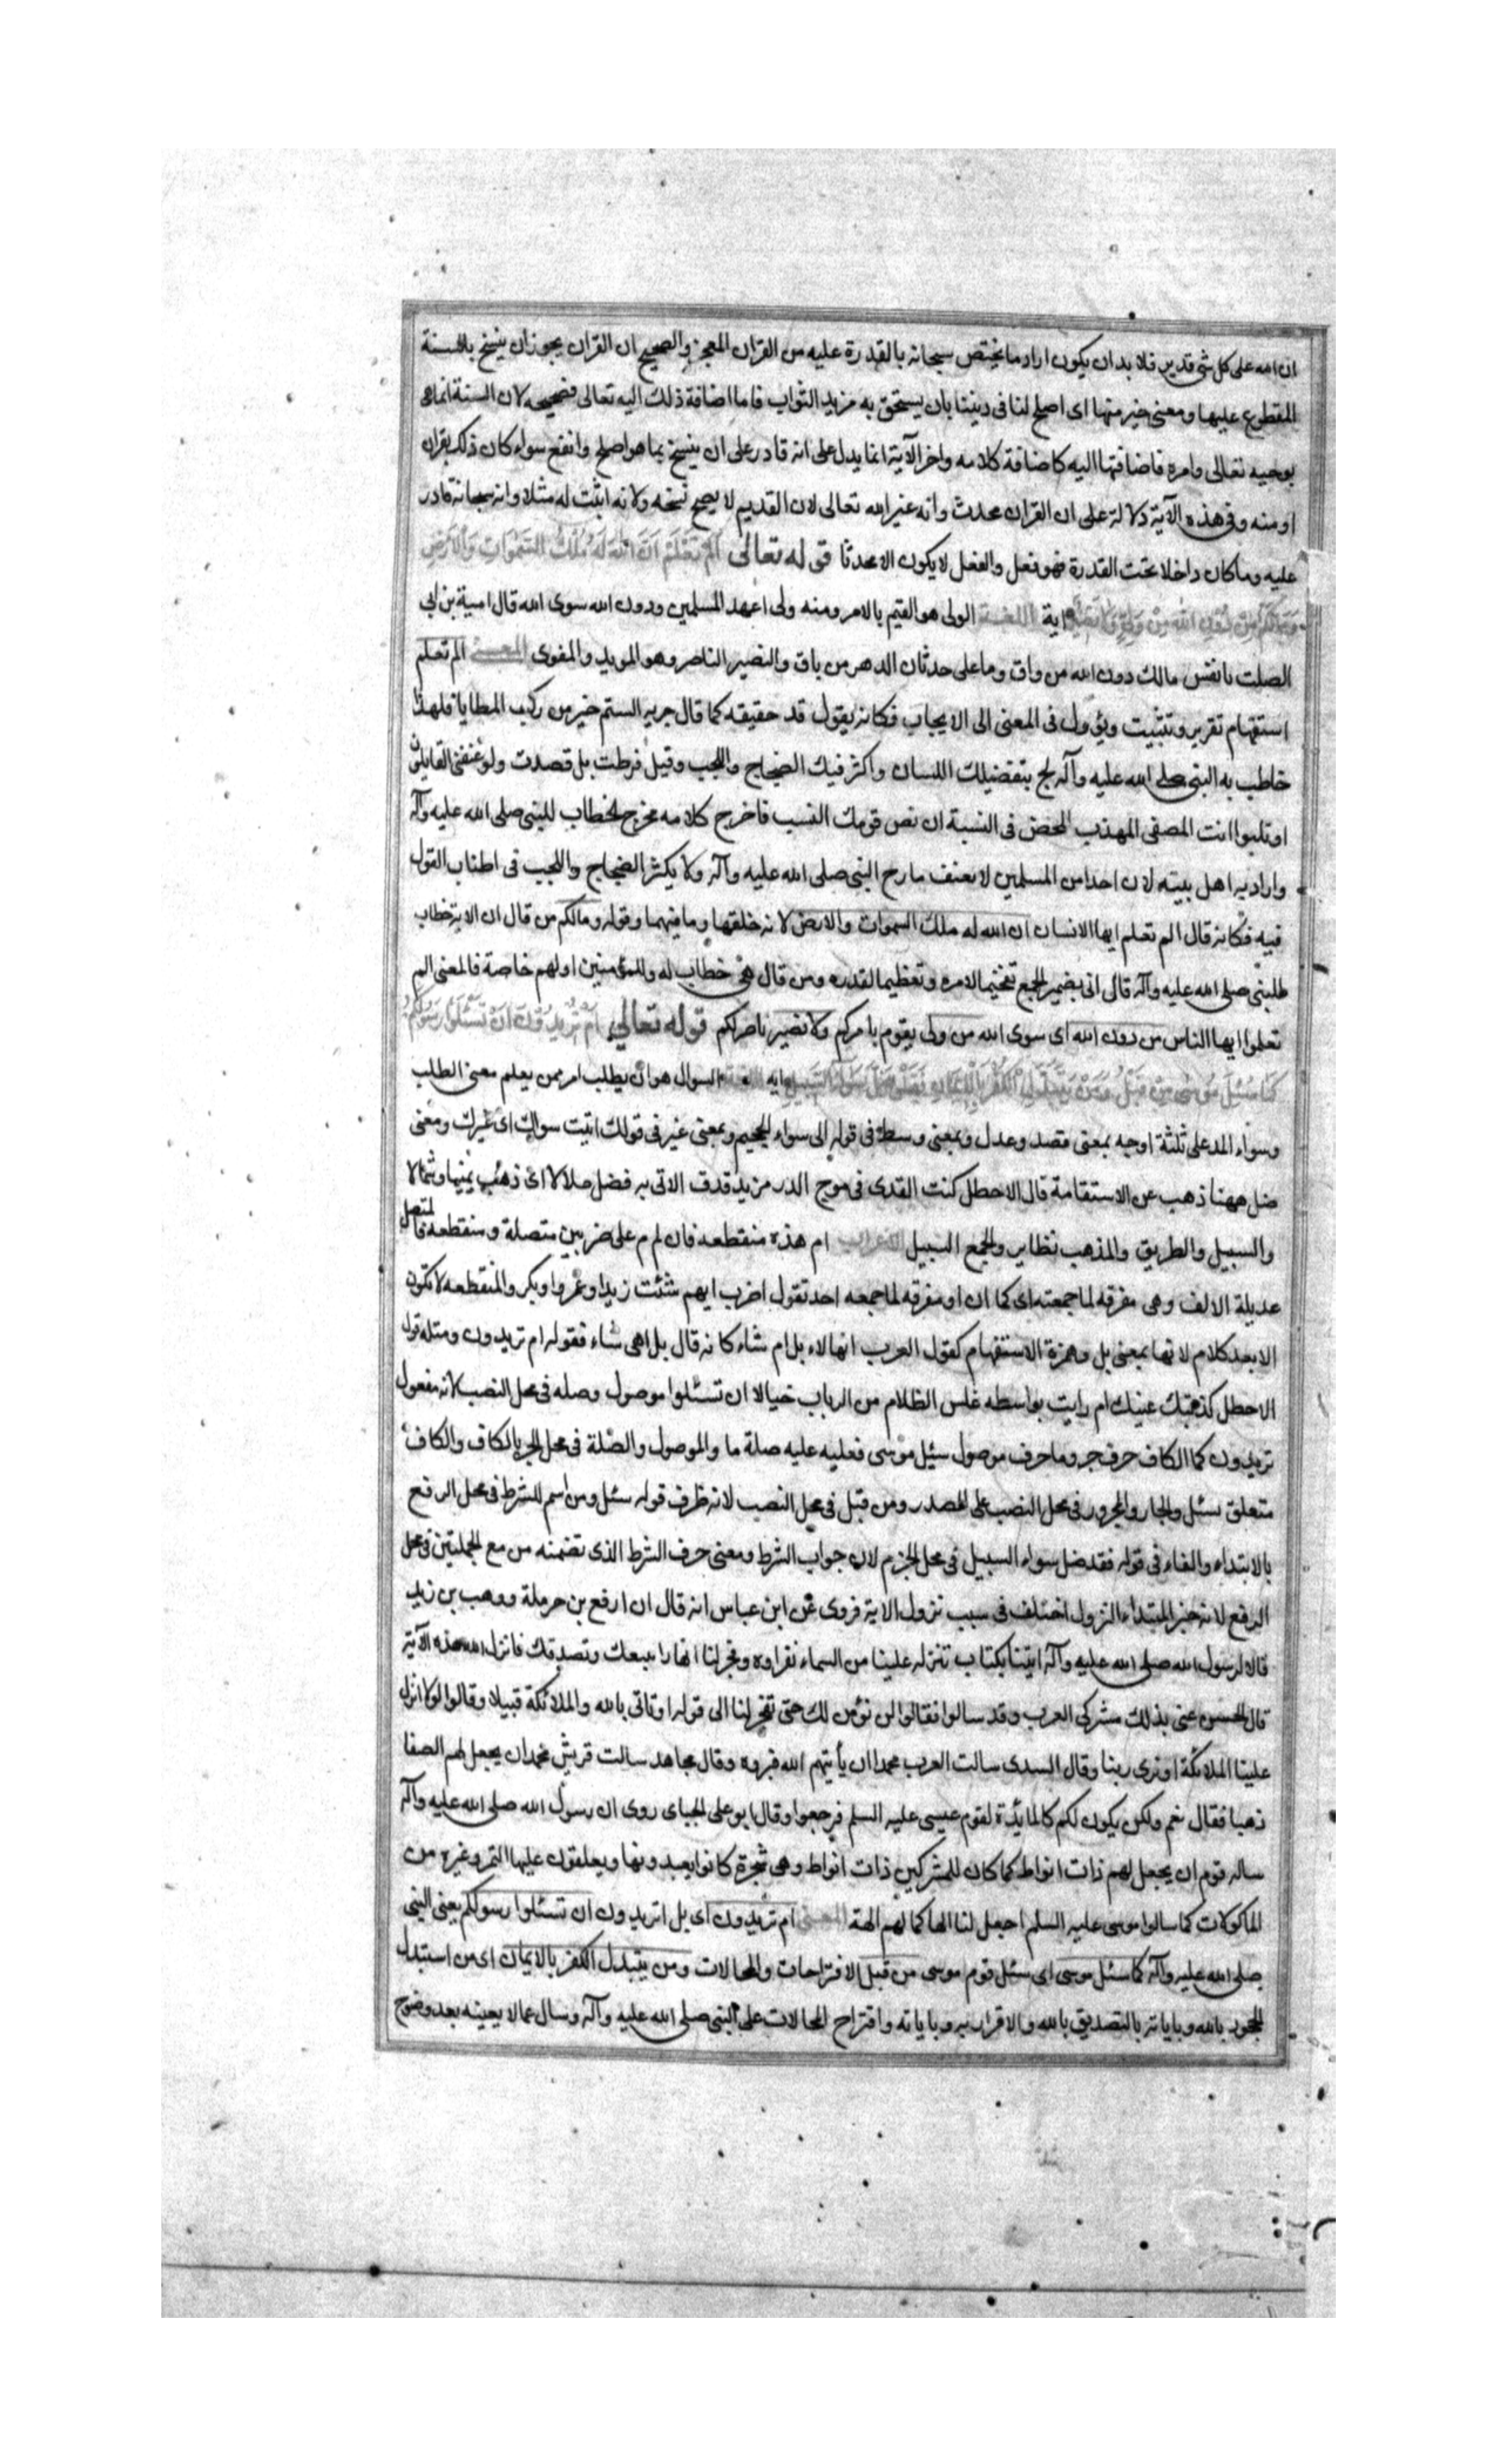 ان الله على كل شئ قدير فلا بد ان يكون اراد ما يختص سبحانه بالقدرة عليه من القران المعجز والصحيح ان القران يجوز ان ينسخ بالسنة
المقطوع عليها ومعنى خير منها اى اصلح لنا فى ديننا بان يستحق به مزيد الثواب فاما اضافة ذلك اليه تعالى فصحيحه لان السنة انما هى
بوحيه تعالى وامره فاضافتها اليه كاضافة كلامه واخر الآية انما يدل على انه قادر على ان ينسخ بما هو اصلح وانفع سواء كان ذلك بقران
او منه وفى هذه الآية دلالة على ان القران محدث وانه غير الله تعالى لان القديم لا يصح نسخه ولانه اثبت له مثلا وانه سبحانه قادر
عليه وما كان داخلا تحت القدرة فهو فعل والفعل لا يكون الا محدثا قوله تعالى اَلَمْ تَعْلَمْ اَنَّ اللهَ لَهُ مُلْكُ السَّمٰوَاتِ وَالْاَرْضِ
وَمَا لَكُمْ مِنْ دُونِ اللهِ مِنْ وَلِيٍّ وَلَا نَصِيرٍ اية اللغة الولى هو القيم بالامر ومنه ولى عهد المسلمين ودون الله سوى الله قال امية بن ابى
الصلت يا نفس مالك دون الله من واق وما على حدثان الدهر من باق والنصير الناصر وهو المويد والمقوى المعنى الم تعلم
استفهام تقرير وتثبيت ويؤول فى المعنى الى الايجاب فكانه يقول قد حقيقه كما قال جرير الستم خير من ركب المطايا فلهذا
خاطب به النبى صلى الله عليه وآله لج بتفضيلك اللسان واكثر فيك الضجاج واللجب وقيل فرطت بل قصدت ولو عنفنى القايلون
او ثلبوا انت المصفى المهذب المحض فى النسبة ان نص قومك النسب فاخرج كلامه مخرج الخطاب للنبى صلى الله عليه وآله
واراد به اهل بيته لان احدا من المسلمين لا يعنف مارح النبى صلى الله عليه وآله ولا يكثر الضجاج واللجب فى اطناب القول
فيه فكانه قال الم تعلم ايها الانسان ان الله له ملك السموات والارض لانه خلقها وما فيهما وقوله ومالكم من قال ان الاية خطاب
للنبى صلى الله عليه وآله قال اتى بضمير الجمع تفخيما لامره وتعظيما لقدره ومن قال هى خطاب له وللمؤمنين او لهم خاصة فالمعنى الم
تعلموا ايها الناس من دون الله اى سوى الله من ولى يقوم بامركم ولا نصير ناصر لكم قوله تعالى اَمْ تُرِيدُونَ اَنْ تَسْئَلُوا رَسُولَكُمْ
كَمَا سُئِلَ مُوسَى مِنْ قَبْلُ وَمَنْ يَتَبَدَّلِ الْكُفْرَ بِالْاِيمَانِ فَقَدْ ضَلَّ سَوَاءَ السَّبِيلِ اية اللغة السوال هو ان يطلب امر ممن يعلم معنى الطلب
وسواء المد على ثلثة اوجه بمعنى قصد وعدل وبمعنى وسط فى قوله الى سواء الجحيم وبمعنى غير فى قولك اتيت سواك اى غيرك ومعنى
ضل ههنا ذهب عن الاستقامة قال الاخطل كنت القدى فى موج الدر مزيد قدف الاتى به فضل ضلالا اى ذهب يمينا وشمالا
والسبيل والطريق والمذهب نظاير والجمع السبيل الاعراب ام هذه منقطعه فان لم م على ضربين متصلة ومنقطعه فالمتصل
عديلة الالف وهى مفرقه لما جمعته اى كما ان او مفرقه لما جمعه احد تقول اضرب ايهم شئت زيدا او عمروا او بكر والمنقطعه لا تكون
الا بعد كلام لانها بمعنى بل وهمزة الاستفهام كقول العرب انها لابل ام شاء كانه قال بل اهى شاء فقوله ام تريدون ومثله قول
الاخطل كذبتك عينك ام رايت بواسطه غلس الظلام من الرباب خيالا ان تسئلوا موصول وصله فى محل النصب لانه مفعول
تريدون كما الكاف حرف جر وما حرف موصول سئيل موسى فعليه عليه صلة ما والموصول والصلة فى محل الجر بالكاف والكاف
متعلق بسئل والجار والمجرور فى محل النصب على المصدر ومن قبل فى محل النصب لانه ظرف قوله سئل ومن اسم للشرط فى محل الرفع
بالابتداء والفاء فى قوله فقد ضل سواء السبيل فى محل الجزم لانه جواب الشرط ومعنى حرف الشرط الذى تضمنه من مع الجملتين فى محل
الرفع لانه خبر المبتداء النزول اختلف فى سبب نزول الاية فروى عن ابن عباس انه قال ان ارفع بن حرملة ووهب بن زيد
قالا لرسول الله صلى الله عليه وآله ائتنا بكتاب تنزله علينا من السماء نقراوه وفجر لنا انهارا نتبعك ونصدقك فانزل الله هذه الآية
قال الحسن عنى بذلك مشركى العرب وقد سالوا فقالوا لن نؤمن لك حتى تفجر لنا الى قوله او تاتى بالله والملائكة قبيلا وقالوا لولا انزل
علينا الملائكة او نرى ربنا وقال السدى سالت العرب محمدا ان يأتيهم الله فيروه وقال مجاهد سالت قريش محمدا ان يجعل لهم الصفا
ذهبا فقال نعم ولكن يكون لكم كالمايدة لقوم عيسى عليه السلم فرجعوا وقال ابو على الجباى روى ان رسول الله صلى الله عليه وآله
ساله قوم ان يجعل لهم ذات انواط كما كان للمشركين ذات انواط وهى شجرة كانوا يعبدونها ويعلقون عليها التمر وغيره من
الماكولات كما سالوا موسى عليه السلم اجعل لنا الها كما لهم الهة المعنى ام تريدون اى بل اتريدون ان تسئلوا رسولكم يعنى النبى
صلى الله عليه وآله كما سئل موسى اى سئل قوم موسى من قبل الاقتراحات والمحالات ومن يتبدل الكفر بالايمان اى من استبدل
الجحود بالله وباياته بالتصديق بالله والاقرار به وباياته واقتراح المحالات على النبى صلى الله عليه وآله وسال عما لا يعينه بعد وضوح